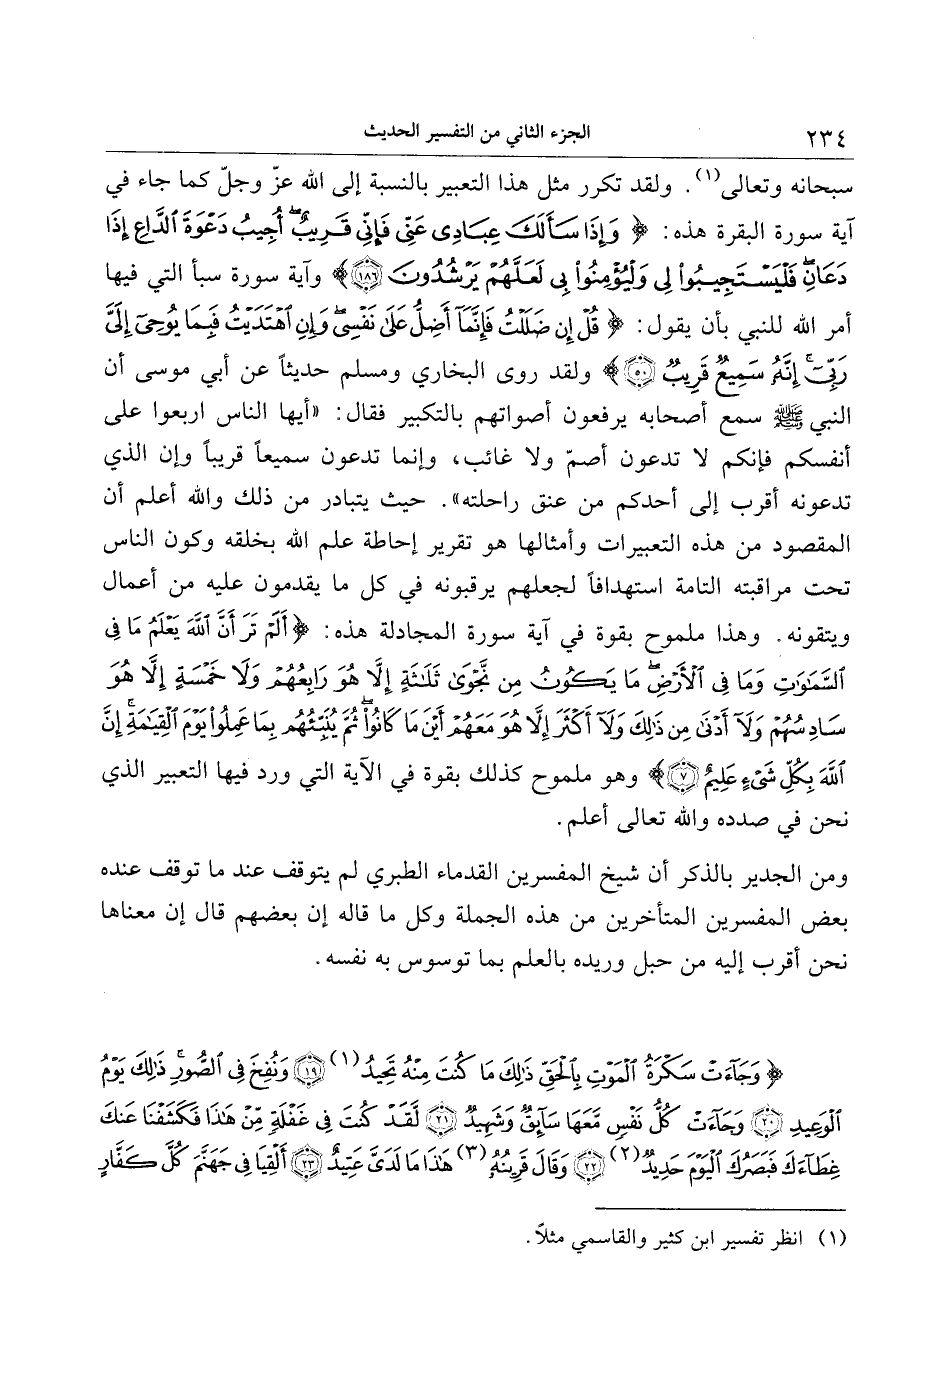 ٢٣٤ الجزء الثاني من التفسير الحديث
سبحانه وتعالى(١). ولقد تكرر مثل هذا التعبير بالنسبة إلى الله عزّ وجلّ كما جاء في
آية سورة البقرة هذه: ﴿ وَإِذَا سَأَلَكَ عِبَادِى عَنِّى فَإِنِّى قَرِيبٌ ۖ أُجِيبُ دَعْوَةَ ٱلدَّاعِ إِذَا
دَعَانِ ۖ فَلْيَسْتَجِيبُوا۟ لِى وَلْيُؤْمِنُوا۟ بِى لَعَلَّهُمْ يَرْشُدُونَ ١٨٦﴾ وآية سورة سبأ التي فيها
أمر الله للنبي بأن يقول: ﴿ قُلْ إِن ضَلَلْتُ فَإِنَّمَآ أَضِلُّ عَلَىٰ نَفْسِى ۖ وَإِنِ ٱهْتَدَيْتُ فَبِمَا يُوحِىٓ إِلَىَّ
رَبِّىٓ ۚ إِنَّهُۥ سَمِيعٌ قَرِيبٌ ٥٠﴾ ولقد روى البخاري ومسلم حديثاً عن أبي موسى أن
النبي ﷺ سمع أصحابه يرفعون أصواتهم بالتكبير فقال: «أيها الناس اربعوا على
أنفسكم فإنكم لا تدعون أصمّ ولا غائب، وإنما تدعون سميعاً قريباً وإن الذي
تدعونه أقرب إلى أحدكم من عنق راحلته». حيث يتبادر من ذلك والله أعلم أن
المقصود من هذه التعبيرات وأمثالها هو تقرير إحاطة علم الله بخلقه وكون الناس
تحت مراقبته التامة استهدافاً لجعلهم يرقبونه في كل ما يقدمون عليه من أعمال
ويتقونه. وهذا ملموح بقوة في آية سورة المجادلة هذه: ﴿ أَلَمْ تَرَ أَنَّ ٱللَّهَ يَعْلَمُ مَا فِى
ٱلسَّمَٰوَٰتِ وَمَا فِى ٱلْأَرْضِ ۖ مَا يَكُونُ مِن نَّجْوَىٰ ثَلَٰثَةٍ إِلَّا هُوَ رَابِعُهُمْ وَلَا خَمْسَةٍ إِلَّا هُوَ
سَادِسُهُمْ وَلَآ أَدْنَىٰ مِن ذَٰلِكَ وَلَآ أَكْثَرَ إِلَّا هُوَ مَعَهُمْ أَيْنَ مَا كَانُوا۟ ۖ ثُمَّ يُنَبِّئُهُم بِمَا عَمِلُوا۟ يَوْمَ ٱلْقِيَٰمَةِ ۚ إِنَّ
ٱللَّهَ بِكُلِّ شَىْءٍ عَلِيمٌ ٧﴾ وهو ملموح كذلك بقوة في الآية التي ورد فيها التعبير الذي
نحن في صدده والله تعالى أعلم.
ومن الجدير بالذكر أن شيخ المفسرين القدماء الطبري لم يتوقف عند ما توقف عنده
بعض المفسرين المتأخرين من هذه الجملة وكل ما قاله إن بعضهم قال إن معناها
نحن أقرب إليه من حبل وريده بالعلم بما توسوس به نفسه.
﴿ وَجَآءَتْ سَكْرَةُ ٱلْمَوْتِ بِٱلْحَقِّ ذَٰلِكَ مَا كُنتَ مِنْهُ تَحِيدُ(١) ١٩ وَنُفِخَ فِى ٱلصُّورِ ۚ ذَٰلِكَ يَوْمُ
ٱلْوَعِيدِ ٢٠ وَجَآءَتْ كُلُّ نَفْسٍ مَّعَهَا سَآئِقٌ وَشَهِيدٌ ٢١ لَّقَدْ كُنتَ فِى غَفْلَةٍ مِّنْ هَٰذَا فَكَشَفْنَا عَنكَ
غِطَآءَكَ فَبَصَرُكَ ٱلْيَوْمَ حَدِيدٌ(٢) ٢٢ وَقَالَ قَرِينُهُۥ(٣) هَٰذَا مَا لَدَىَّ عَتِيدٌ ٢٣ أَلْقِيَا فِى جَهَنَّمَ كُلَّ كَفَّارٍ
(١) انظر تفسير ابن كثير والقاسمي مثلاً.